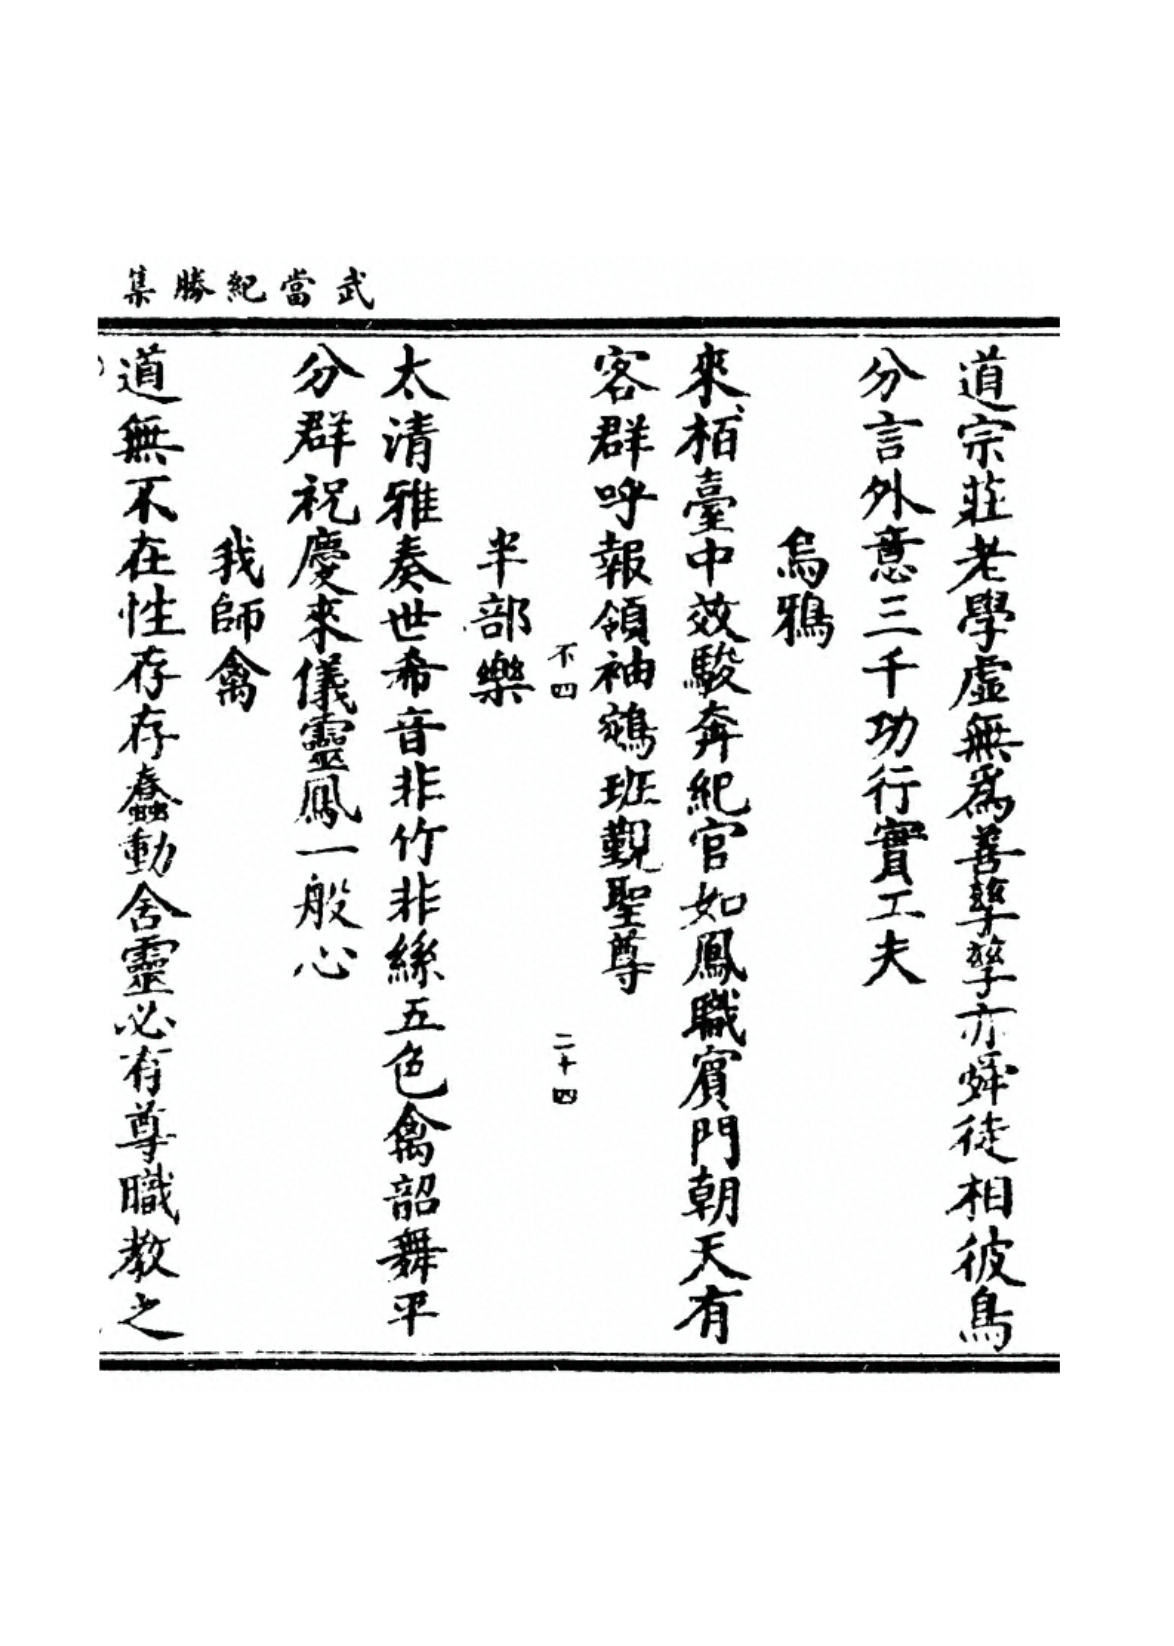 武當紀勝集
道宗莊老學虛無爲善孳孳亦舜徒相彼鳥
分言外意三千功行實工夫
烏鴉
來栢臺中效駿奔紀官如鳳職賓門朝天有
客群呼報領袖鵷班覲聖尊
不四
二十四
半部樂
太清雅奏世希音非竹非絲五色禽韶舞平
分群祝慶來儀靈鳳一般心
我師禽
道無不在性存存蠢動含靈必有尊職教之